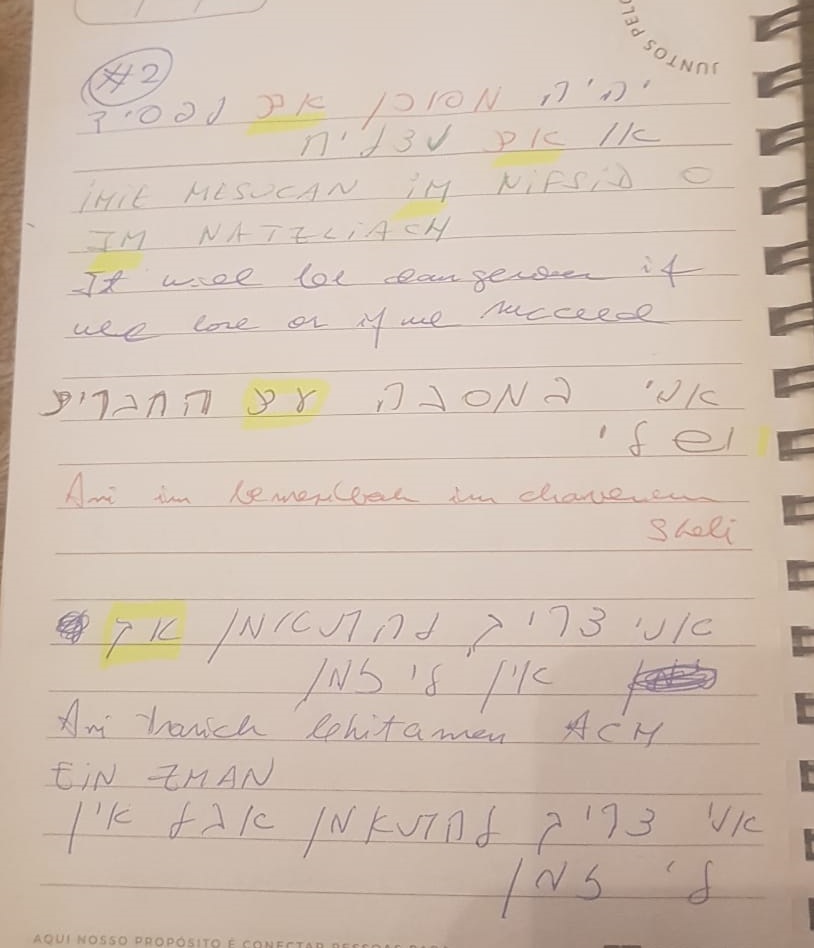 JUNTOS PELO
#2
יהיה מסוכן אם נפסיד
או אם נצליח
IMIE MESUCAN IM NIFSID O
IM NATZLIACH
It will be dangerous if
we lose or if we succeed
אני במסבה עם החברים
שלי
Ani im bemesibah im chaverem
Sheli
אני צריך להתאמן אך
אין לי זמן
Ani tzarich lehitamen ACH
EIN ZMAN
אני צריך להתאמן אבל אין
לי זמן
AQUI NOSSO PROPÓSITO É CONECTAR PESSOAS